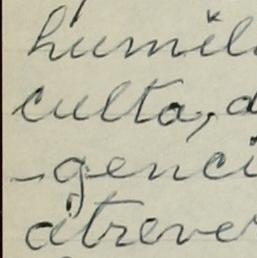 humil
culta, d
-genci
atrever